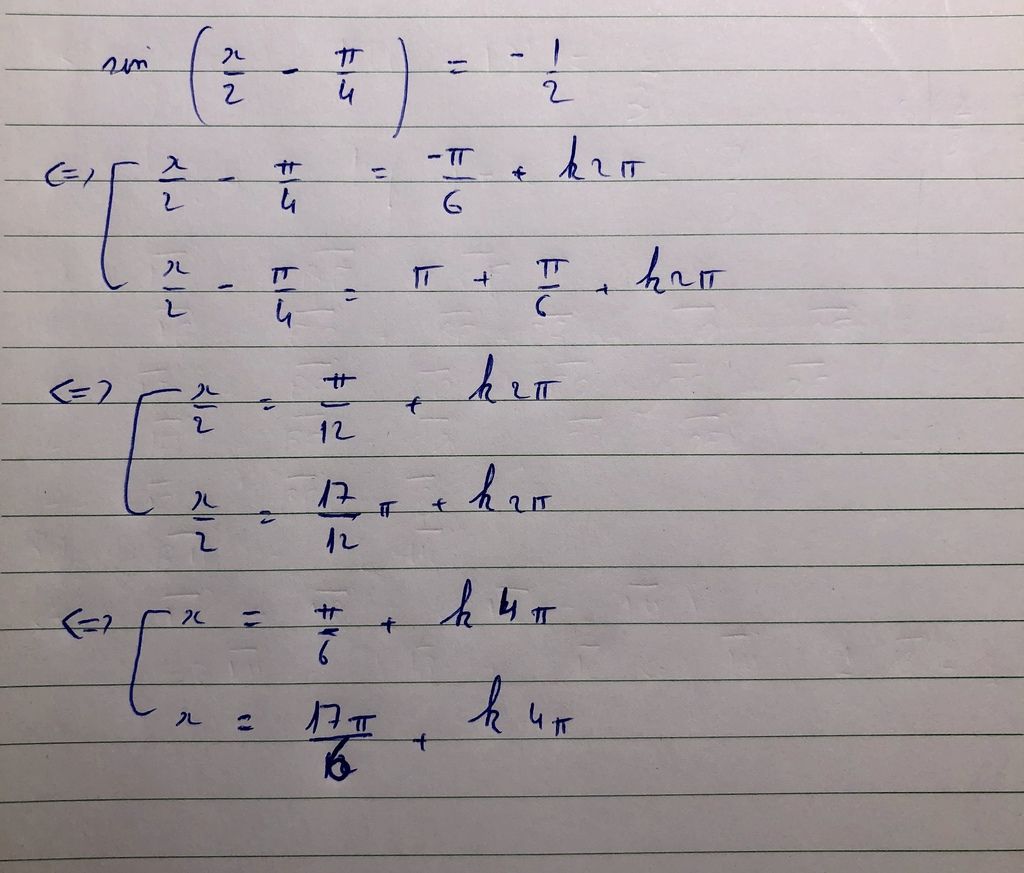 sin (x/2 - π/4) = -1/2
<=> [ x/2 - π/4 = -π/6 + k2π
x/2 - π/4 = π + π/6 + k2π
<=> [ x/2 = π/12 + k2π
x/2 = 17/12 π + k2π
<=> [ x = π/6 + k4π
x = 17π/6 + k4π